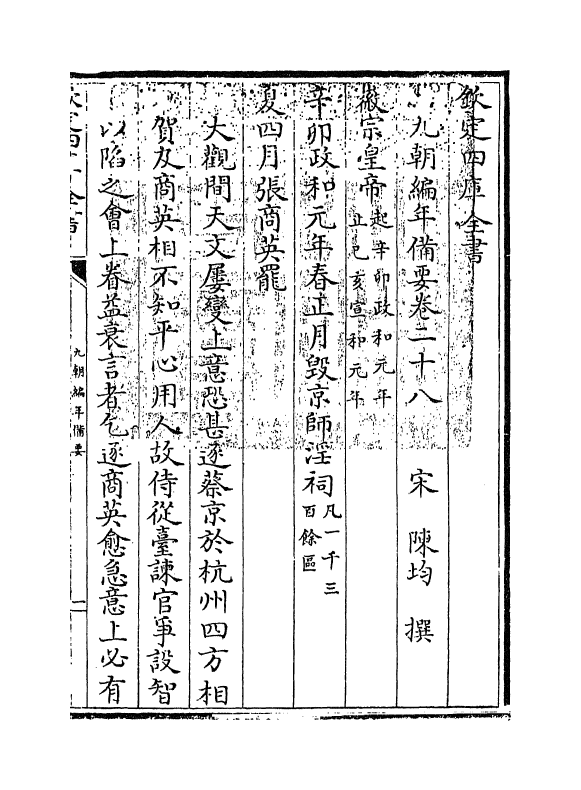 欽定四庫全書
九朝編年備要卷二十八　宋　陳均　撰
徽宗皇帝 起辛卯政和元年
止己亥宣和元年
辛卯政和元年春正月毁京師淫祠 凡一千三
百餘區
夏四月張商英罷
大觀間天文屢變上意恐甚遂逐蔡京於杭州四方相
賀及商英相不知平心用人故侍從臺諫官爭設智
以陷之會上眷益衰言者乞逐商英愈急意上必有
九朝編年備要